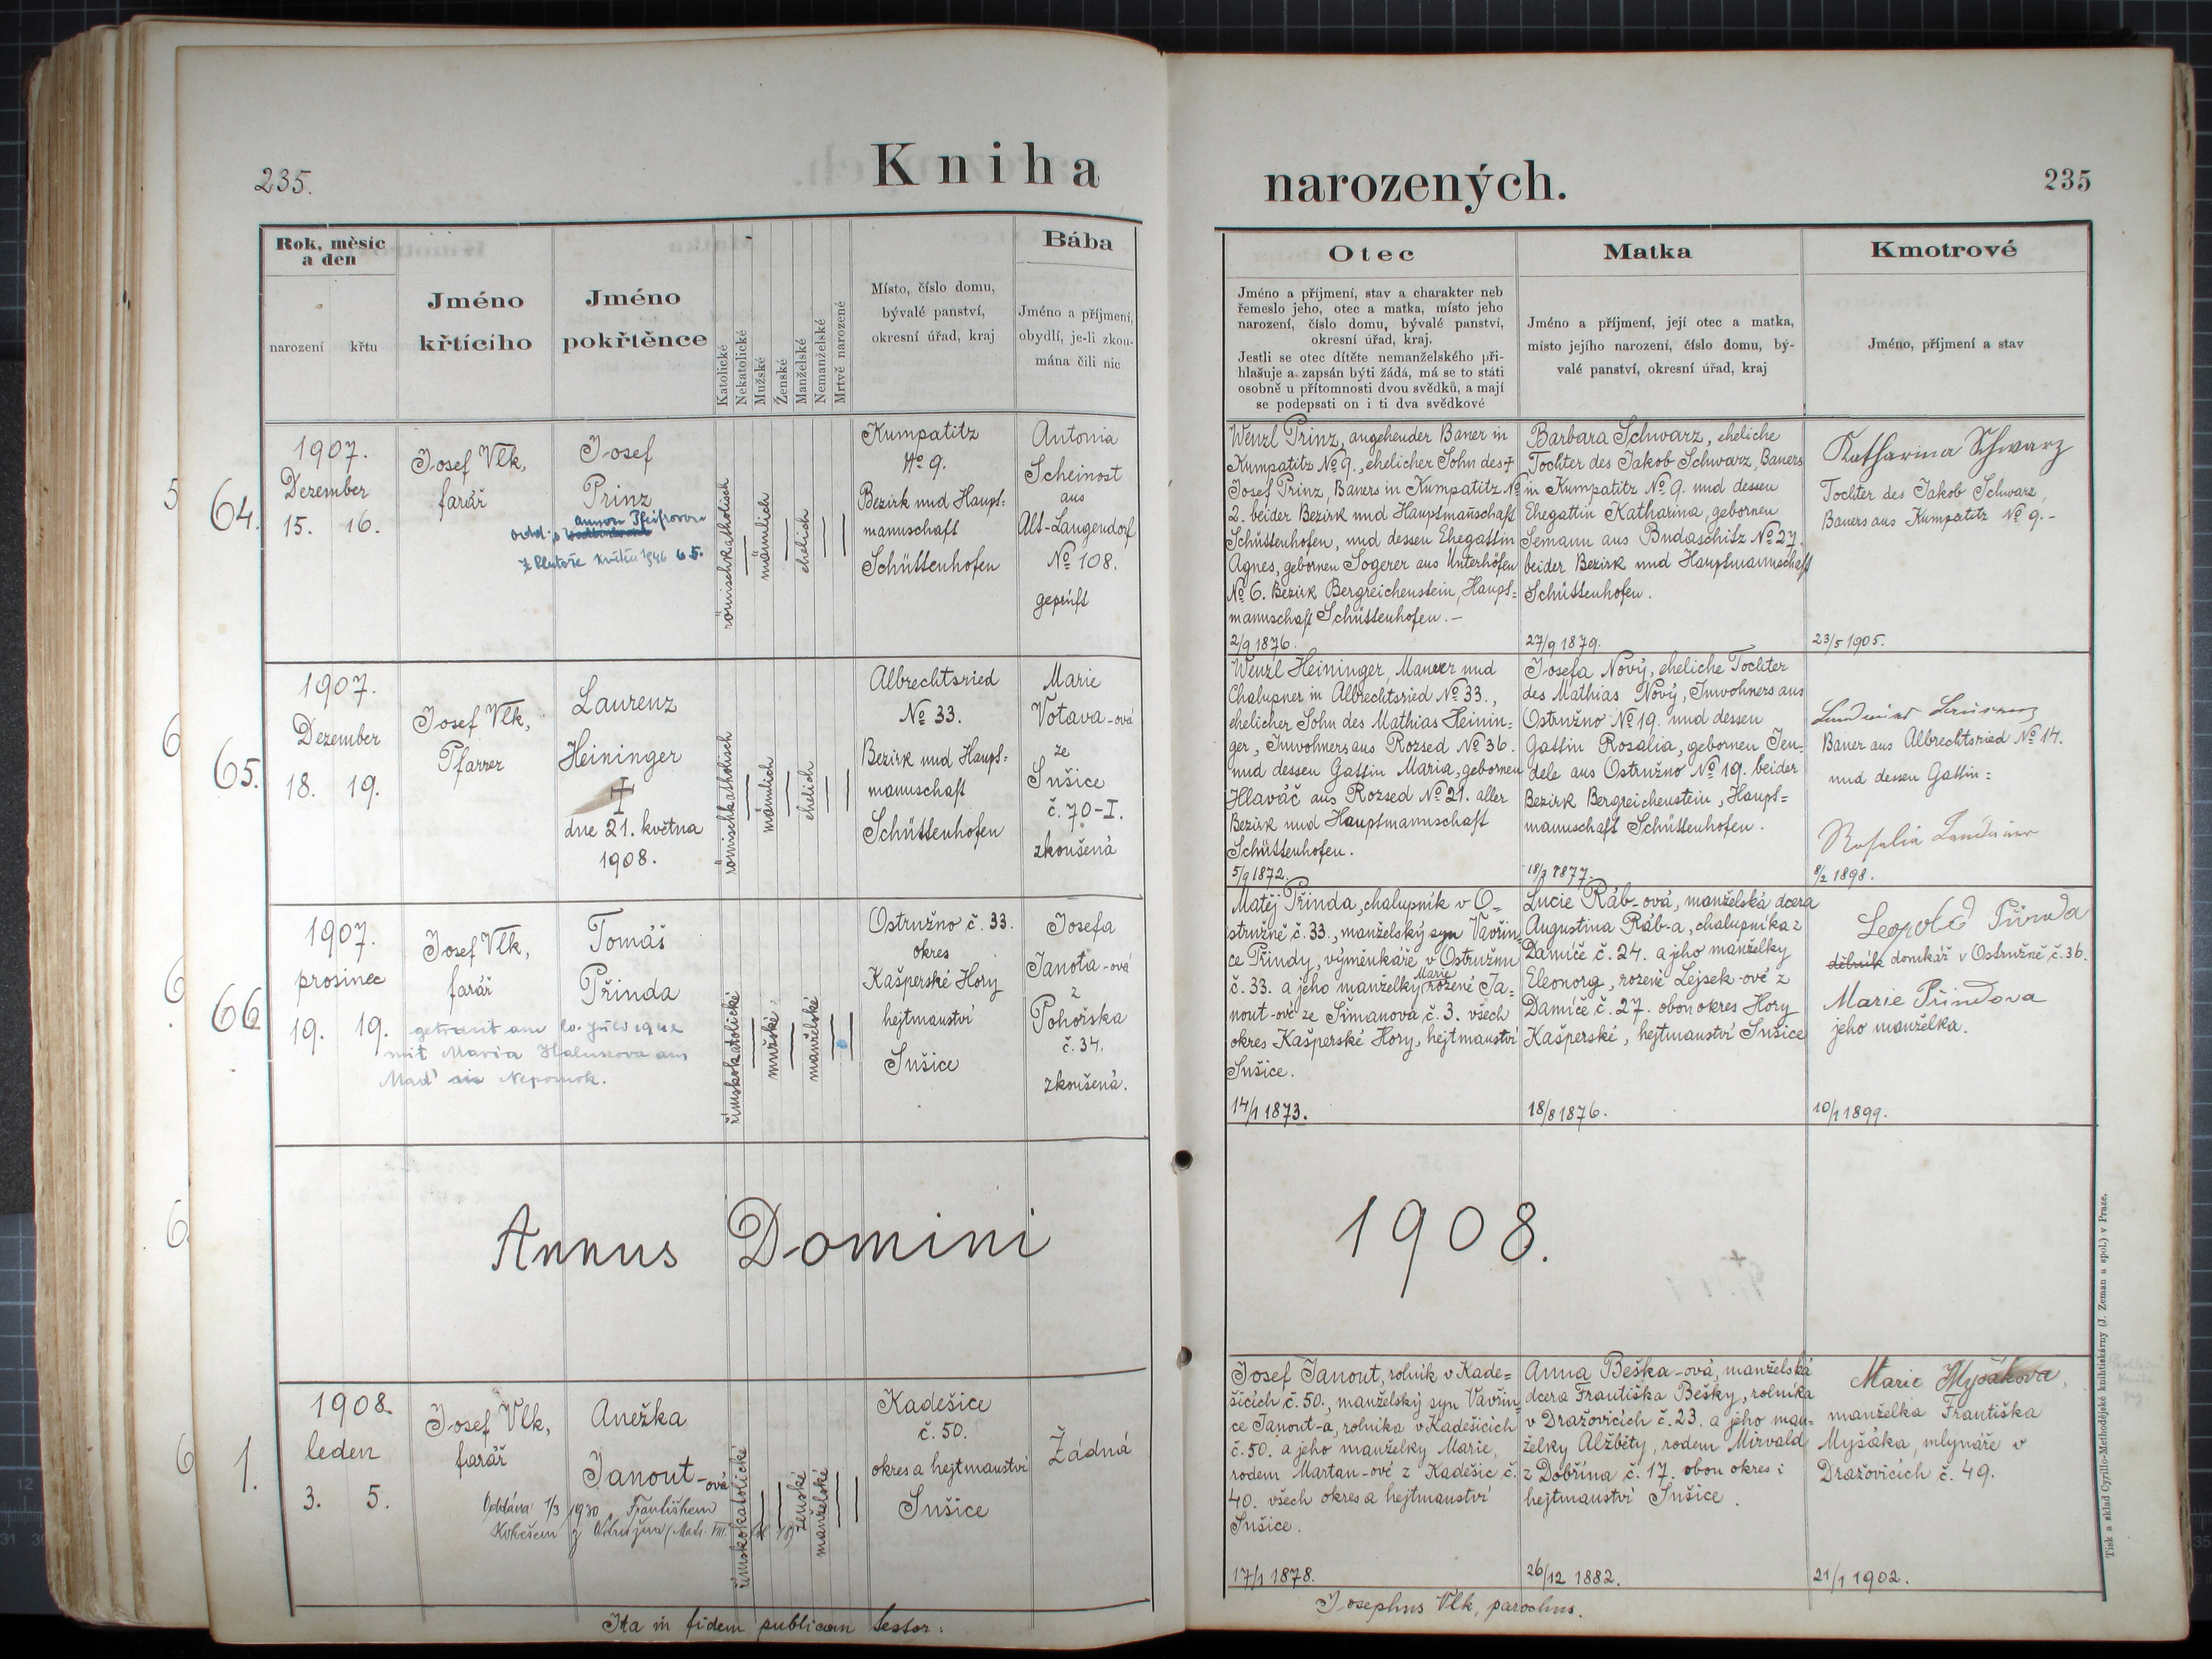 235.
Kniha
narozených.
235
Rok, měsíc
a den
narození
křtu
Jméno
křtícího
Jméno
pokřtěnce
Katolické
Nekatolické
Mužské
Ženské
Manželské
Nemanželské
Mrtvě narozené
Místo, číslo domu,
bývalé panství,
okresní úřad, kraj
Bába
Jméno a příjmení,
obydlí, je-li zkou-
mána čili nic
Otec
Jméno a příjmení, stav a charakter neb
řemeslo jeho, otec a matka, místo jeho
narození, číslo domu, bývalé panství,
okresní úřad, kraj.
Jestli se otec dítěte nemanželského při-
hlašuje a zapsán býti žádá, má se to státi
osobně u přítomnosti dvou svědků, a mají
se podepsati on i ti dva svědkové
Matka
Jméno a příjmení, její otec a matka,
místo jejího narození, číslo domu, bý-
valé panství, okresní úřad, kraj
Kmotrové
Jméno, příjmení a stav
64.
1907.
Dezember
15. 16.
Josef Vlk,
farář
Josef
Prinz
römischkatholisch
männlich
ehelich
Kumpatitz
No 9.
Bezirk und Haupt=
mannschaft
Schüttenhofen
Antonia
Scheinost
aus
Alt-Langendorf
No 108.
geprüft
Wenzl Prinz, angehender Bauer in
Kumpatitz No 9., ehelicher Sohn des †
Josef Prinz, Bauers in Kumpatitz No
2. beider Bezirk und Hauptmannschaft
Schüttenhofen, und dessen Ehegattin
Agnes, gebornen Sogerer aus Unterhöfen
No 6. Bezirk Bergreichenstein, Haupt=
mannschaft Schüttenhofen.-
2/9 1876.
Barbara Schwarz, eheliche
Tochter des Jakob Schwarz, Bauers
in Kumpatitz No 9. und dessen
Ehegattin Katharina, gebornen
Semann aus Budaschitz No 27.
beider Bezirk und Hauptmannschaft
Schüttenhofen.
27/9 1879.
Katharina Schwarz
Tochter des Jakob Schwarz,
Bauers aus Kumpatitz No 9.-
23/5 1905.
65.
1907.
Dezember
18. 19.
Josef Vlk,
Pfarrer
Laurenz
Heininger
†
dne 21. května
1908.
römischkatholisch
männlich
ehelich
Albrechtsried
No 33.
Bezirk und Haupt=
mannschaft
Schüttenhofen
Marie
Votava-ová
ze
Sušice
č. 70-I.
zkoušená
Wenzl Heininger, Maurer und
Chalupner in Albrechtsried No 33.,
ehelicher Sohn des Mathias Heinin=
ger, Inwohners aus Rozsed No 36.
und dessen Gattin Maria, gebornen
Hlaváč aus Rozsed No 21. aller
Bezirk und Hauptmannschaft
Schüttenhofen.
5/9 1872.
Josefa Nový, eheliche Tochter
des Mathias Nový, Inwohners aus
Ostružno No 19. und dessen
Gattin Rosalia, gebornen Jen=
dele aus Ostružno No 19. beider
Bezirk Bergreichenstein, Haupt=
mannschaft Schüttenhofen.
Bauer aus Albrechtsried No 14.
und dessen Gattin:
Rosalia
8/2 1898.
66
1907.
prosinec
19. 19.
Josef Vlk,
farář
Tomáš
Přinda
getraut am 20. Juli 1942
mit Maria Halusova aus
Nepomuk.
římskokatolické
mužské
manželské
Ostružno č. 33.
okres
Kašperské Hory
hejtmanství
Sušice
Josefa
Janota-ová
z
Pohorska
č. 34.
zkoušená.
Matěj Přinda, chalupník v O=
stružně č. 33., manželský syn Vavřin=
ce Přindy, výměnkáře v Ostružnu
č. 33. a jeho manželky Marie rozené Ja=
nout-ové ze Šimanova č. 3. všech
okres Kašperské Hory, hejtmanství
Sušice.
14/1 1873.
Lucie Ráb-ová, manželská dcera
Augustina Ráb-a, chalupníka z
Damíče č. 24. a jeho manželky
Eleonory, rozené Lejsek-ové z
Damíče č. 27. obou okres Hory
Kašperské, hejtmanství Sušice
18/8 1876.
Leopold Přinda
dělník domkář v Ostružně č. 36.
Marie Přindova
jeho manželka.
10/1 1899.
Annus Domini
1908.
1.
1908.
leden
3. 5.
Josef Vlk,
farář
Anežka
Janout-ová
Oddána 1/3 1930 s Františkem
římskokatolické
ženské
manželské
Kadešice
č. 50.
okres a hejtmanství
Sušice
Žádná
Josef Janout, rolník v Kade=
šicích č. 50., manželský syn Vavřin=
ce Janout-a, rolníka v Kadešicích
č. 50. a jeho manželky Marie,
rodem Martan-ové z Kadešic č.
40. všech okres a hejtmanství
Sušice.
17/1 1878.
Anna Beška-ová, manželská
dcera Františka Bešky, rolníka
v Dražovicích č. 23. a jeho man=
želky Alžběty, rodem Mirvald
z Dobřína č. 17. obou okres i
hejtmanství Sušice.
26/12 1882.
Marie Myšákova,
manželka Františka
Myšáka, mlynáře v
Dražovicích č. 49.
21/1 1902.
Ita in fidem publicam testor:
Josephus Vlk, parochus.
Tisk a sklad Cyrillo-Methodějské knihtiskárny (J. Zeman a spol.) v Praze.